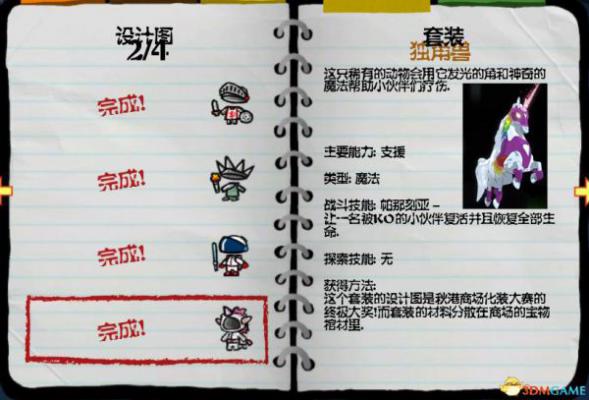 设计图
2/4
完成!
完成!
完成!
完成!
套装
独角兽
这只稀有的动物会用它发光的角和神奇的
魔法帮助小伙伴们疗伤.
主要能力: 支援
类型: 魔法
战斗技能: 帕那刻亚 -
让一名被KO的小伙伴复活并且恢复全部生
命.
探索技能: 无
获得方法:
这个套装的设计图是秋港商场化装大赛的
终极大奖!而套装的材料分散在商场的宝物
棺材里.
3DMGAME